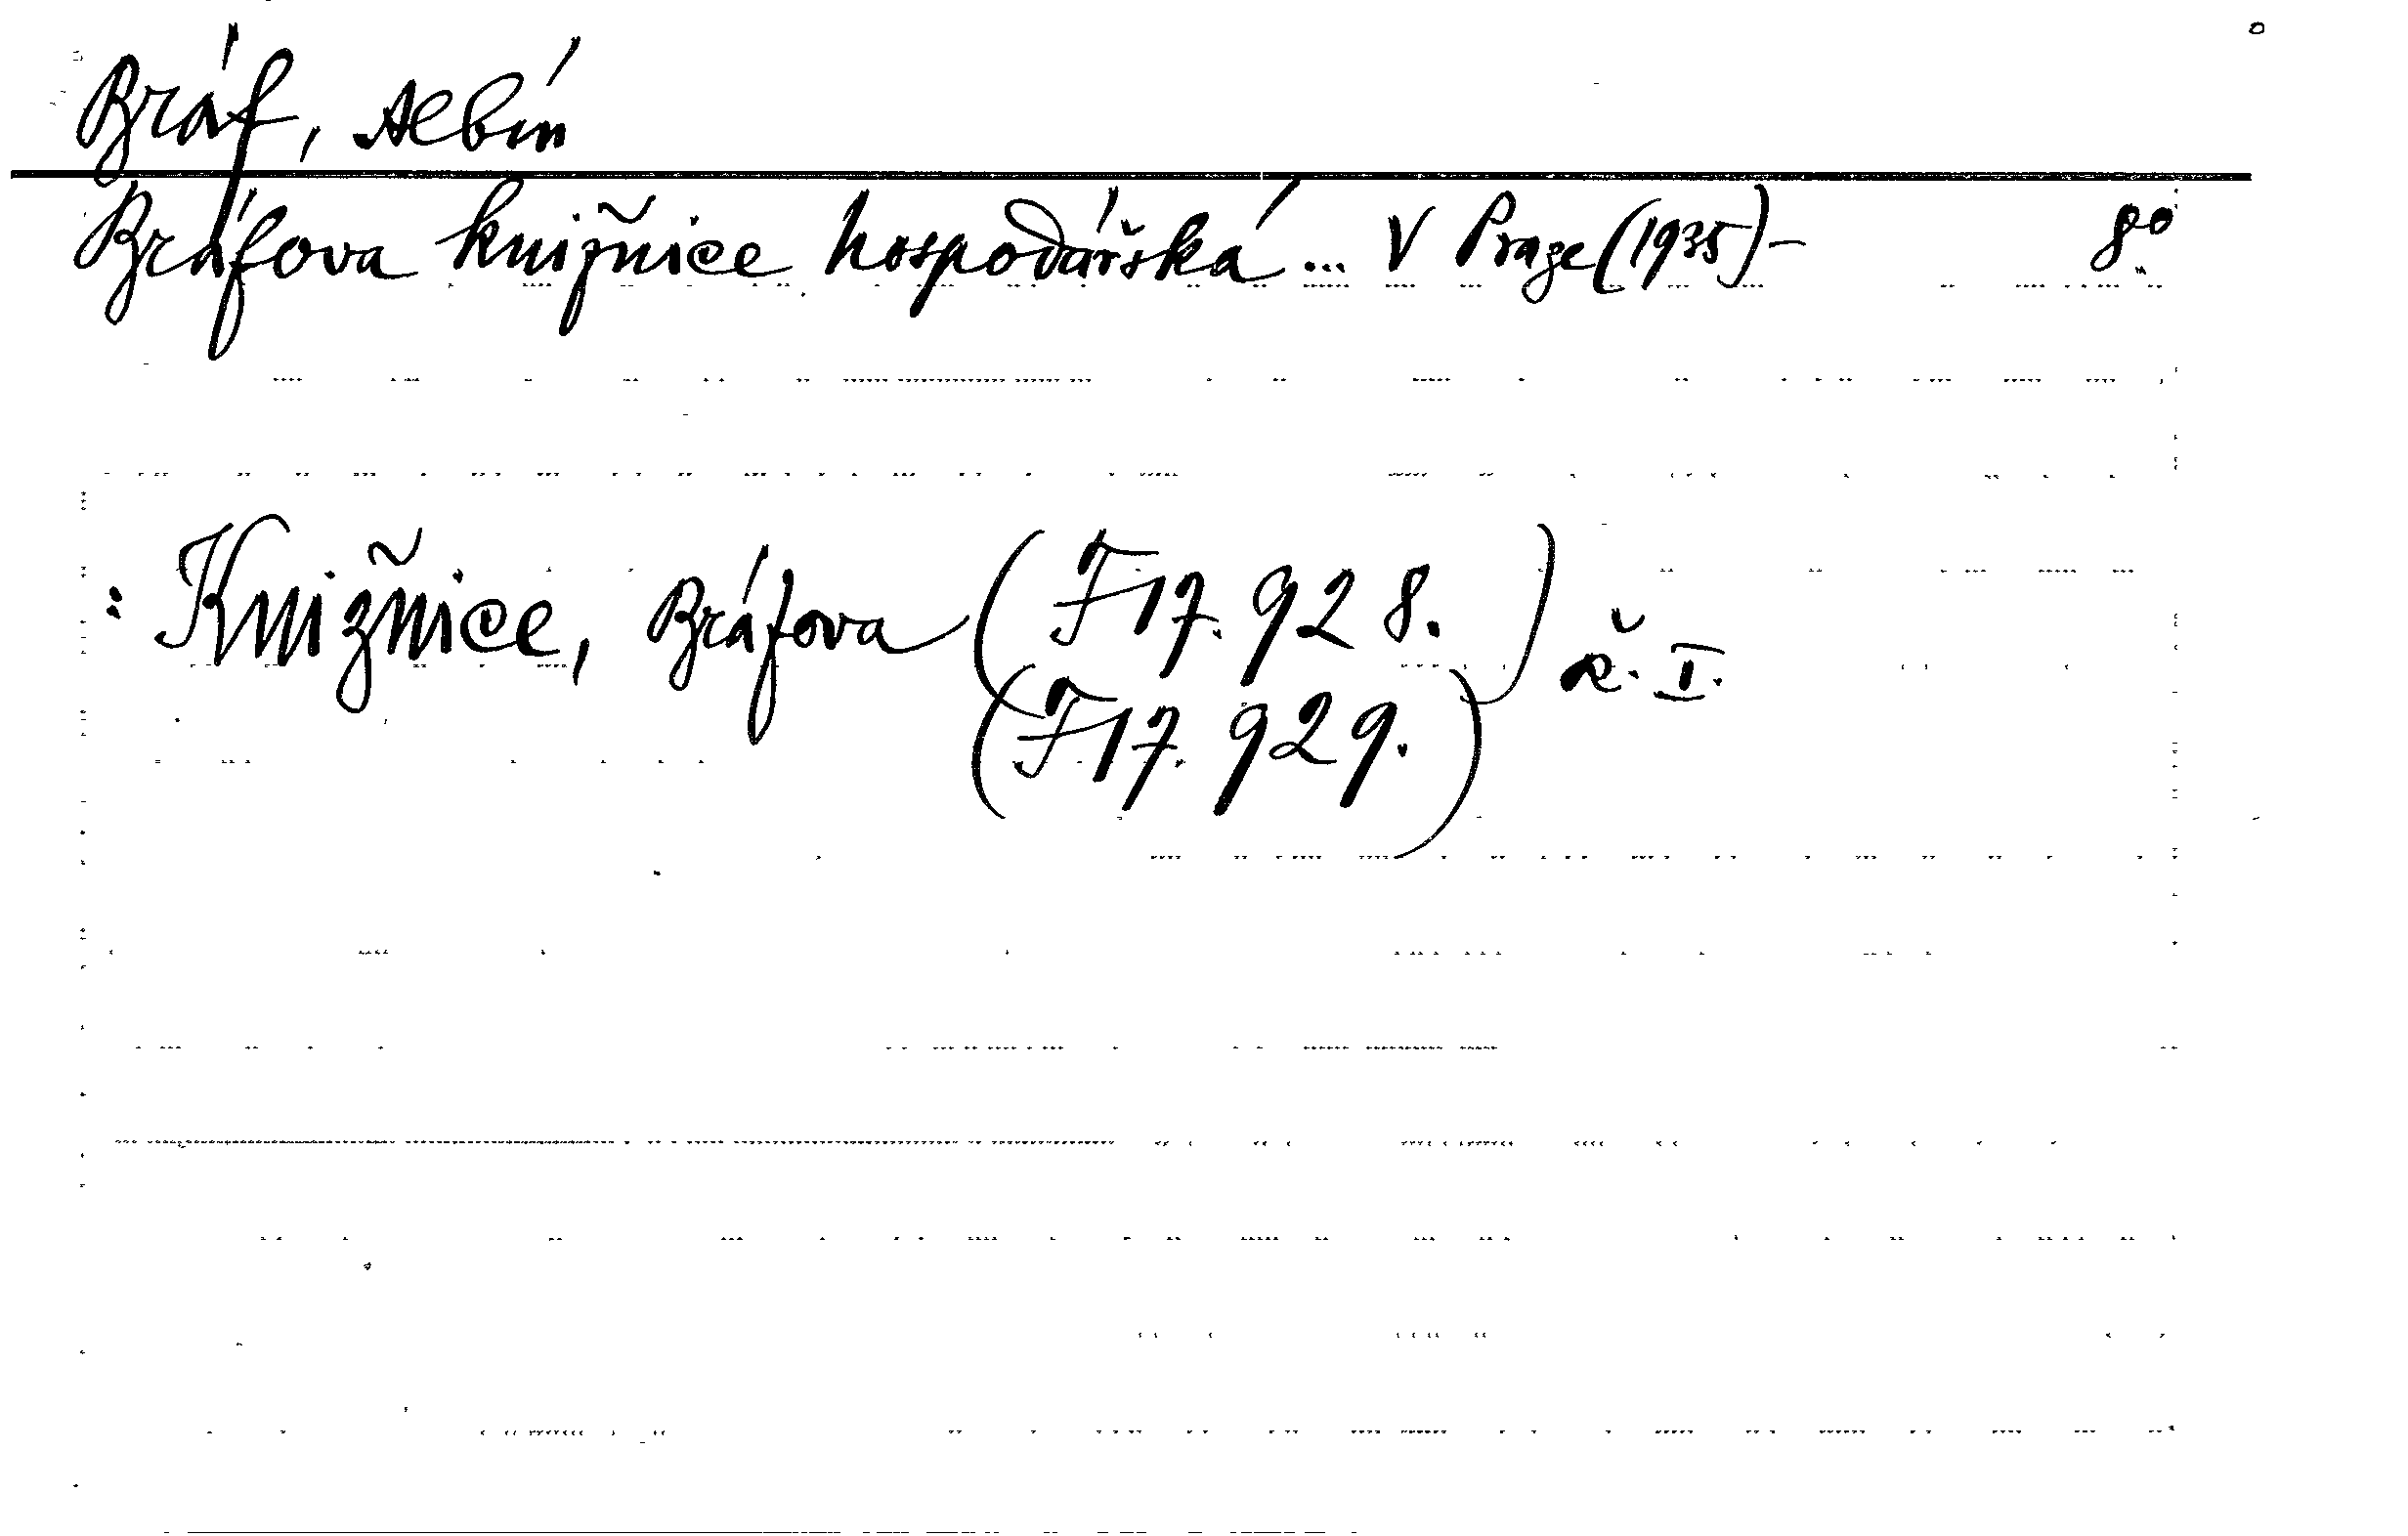 Bráf, Albín
Bráfova knižnice hospodářská ... V Praze (1935)- 8°
: Knižnice, Bráfova (F 17.928.) ř. I.
(F 17.929.)